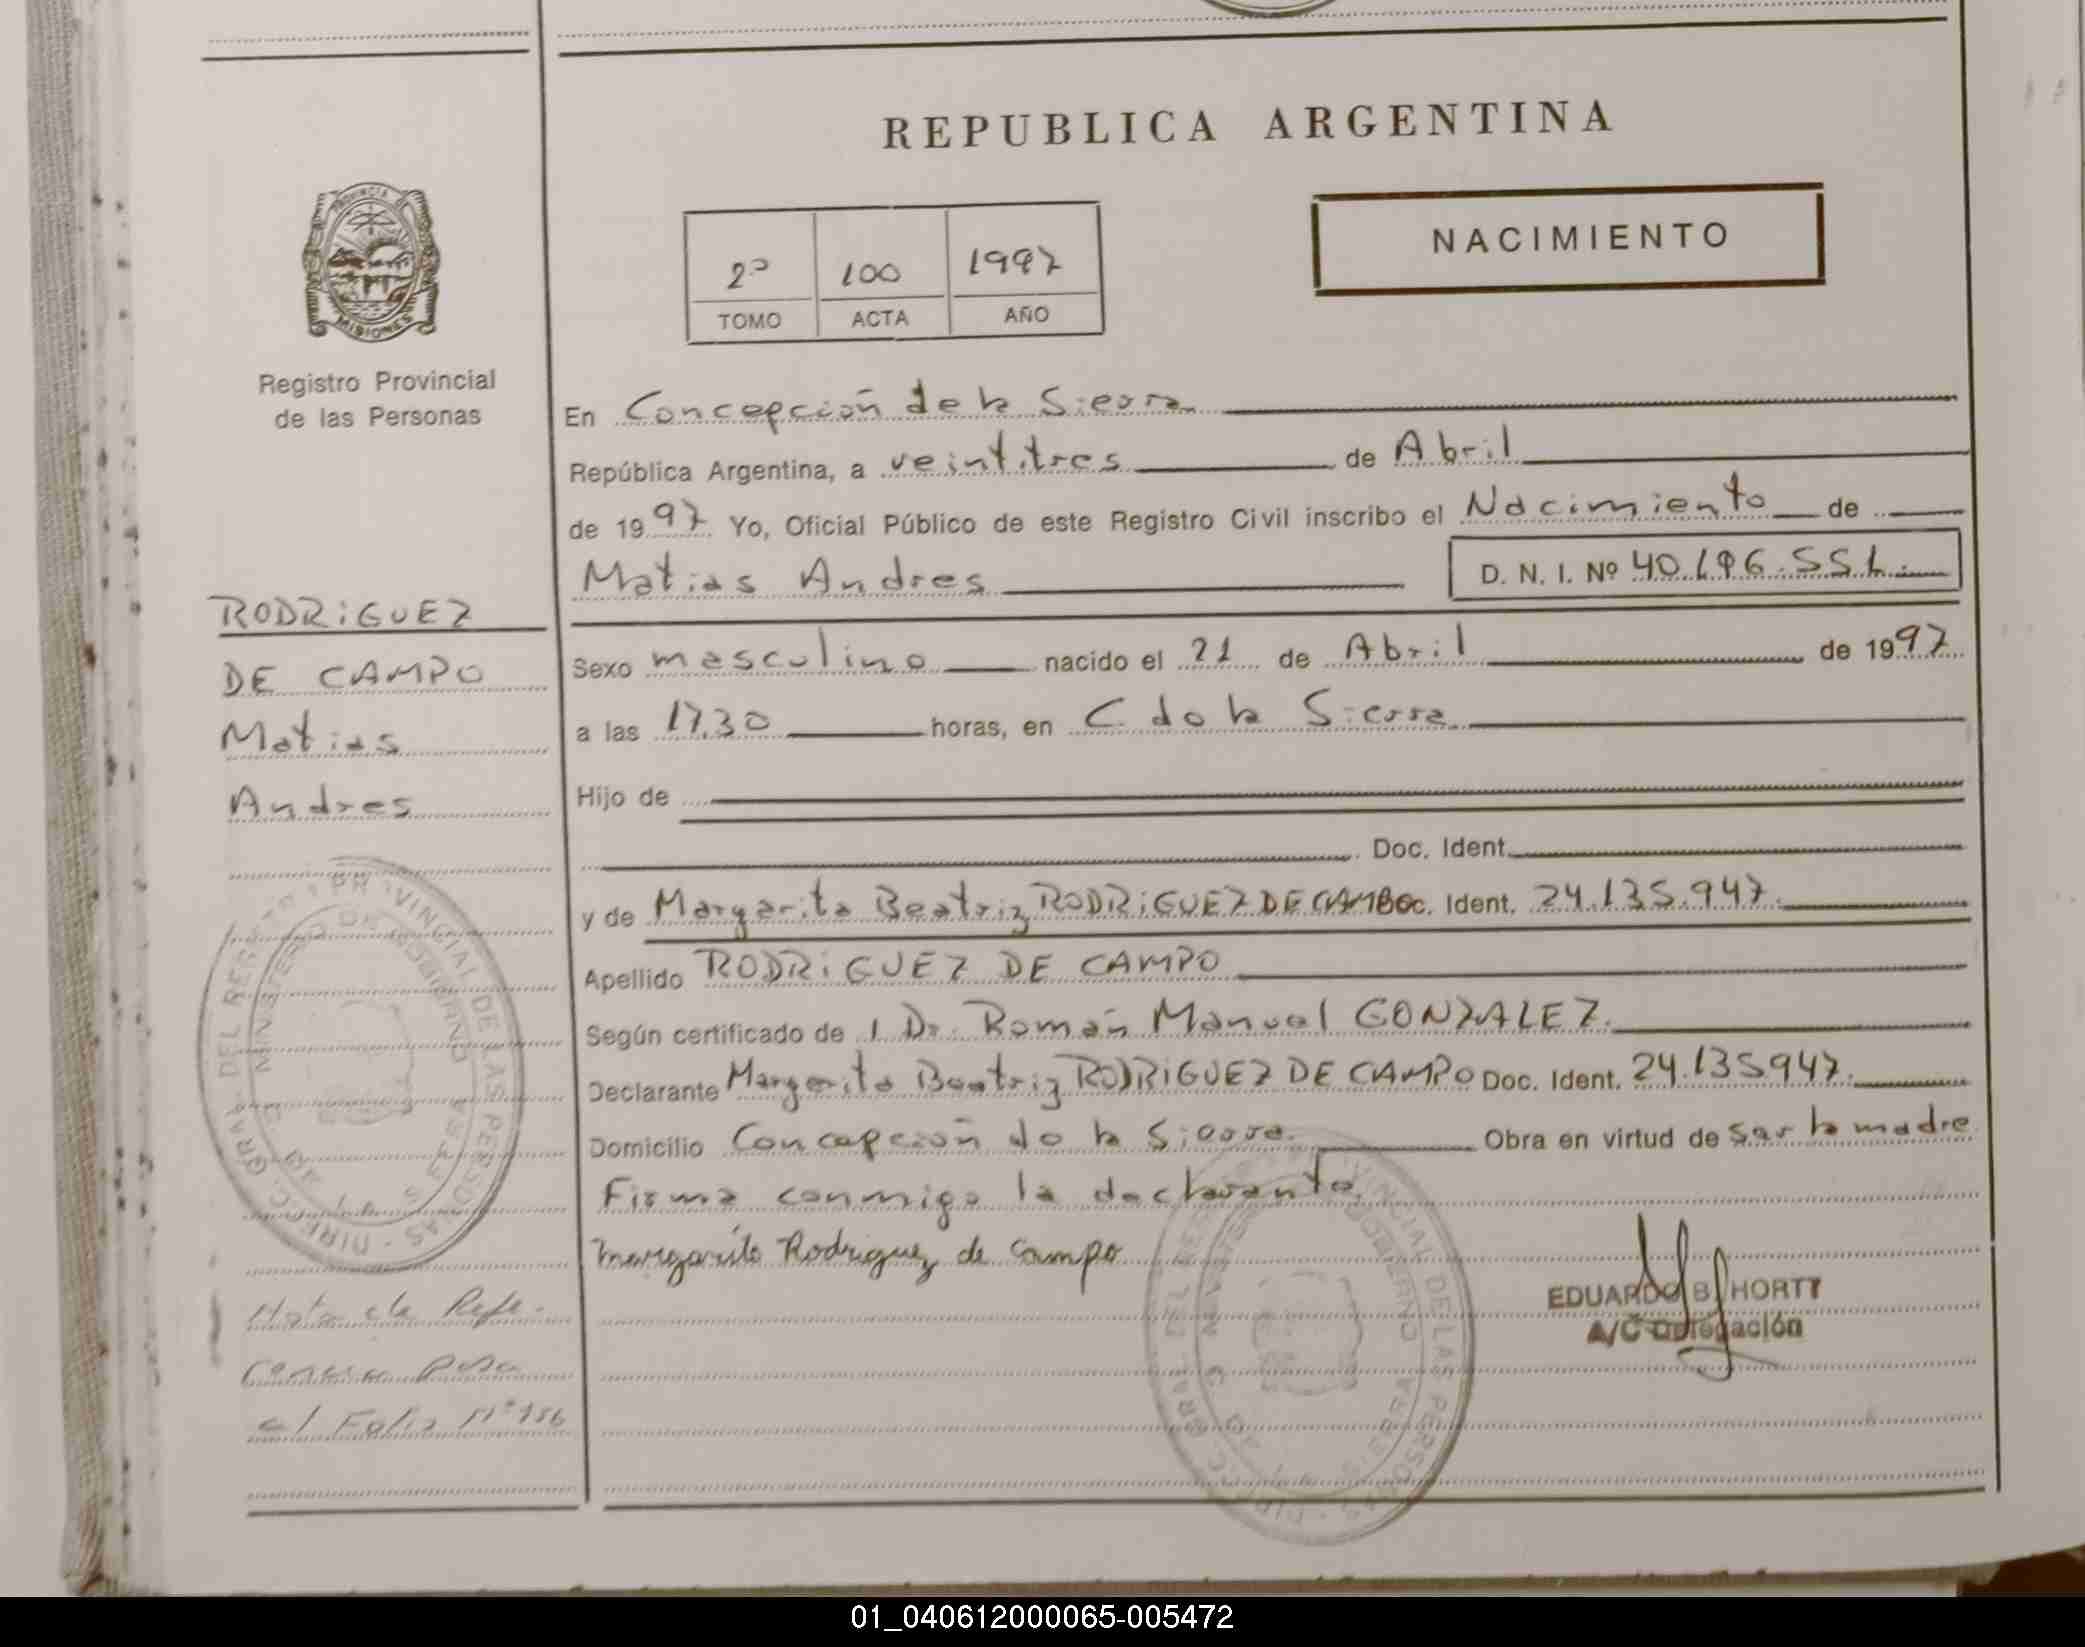 REPUBLICA ARGENTINA
NACIMIENTO
2º 100 1997
TOMO ACTA AÑO
PROVINCIA
MISIONES
Registro Provincial
de las Personas
En Concepción de la Sierra
República Argentina, a veintitres de Abril
de 1997 Yo, Oficial Público de este Registro Civil inscribo el Nacimiento de
Matias Andres D. N. I. Nº 40.196.551.
RODRiGUEZ
DE CAMPO
Matias
Andres
Sexo masculino nacido el 21 de Abril de 1997
a las 17.30 horas, en C. de la Sierra
Hijo de
Doc. Ident.
y de Margarita Beatriz RODRiGUEZ DE CAMPO Doc. Ident. 24.135.947.
Apellido RODRiGUEZ DE CAMPO
Según certificado de 1 Dr. Román Manuel GONZALEZ.
Declarante Margarita Beatriz RODRiGUEZ DE CAMPO Doc. Ident. 24.135947.
Domicilio Concepción de la Sierra. Obra en virtud de ser la madre
Firma conmigo la declarante.
Margarita Rodriguez de Campo
EDUARDO B. HORTT
A/C Delegación
Nota de Refe.
al Folio Nº 186
01_040612000065-005472